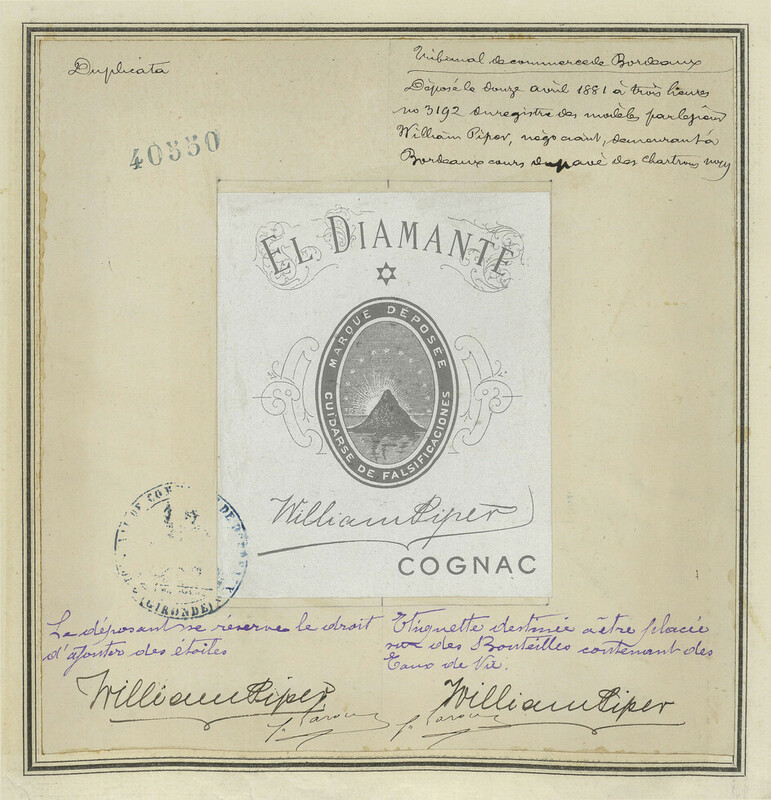 Duplicata
Tribunal de commerce de Bordeaux
Déposé le douze avril 1881 à trois heures
no 3192 du registre des modèles par le sieur
William Piper, négociant, demeurant à
Bordeaux cours du pavé des Chartrons
40550
EL DIAMANTE
MARQUE DÉPOSÉE
CUIDARSE DE FALSIFICACIONES
William Piper
COGNAC
(GIRONDE)
Le déposant se réserve le droit
d'ajouter des étoiles
Etiquette destinée à être placée
sur des Bouteilles contenant des
Eaux de Vie.
William Piper
William Piper